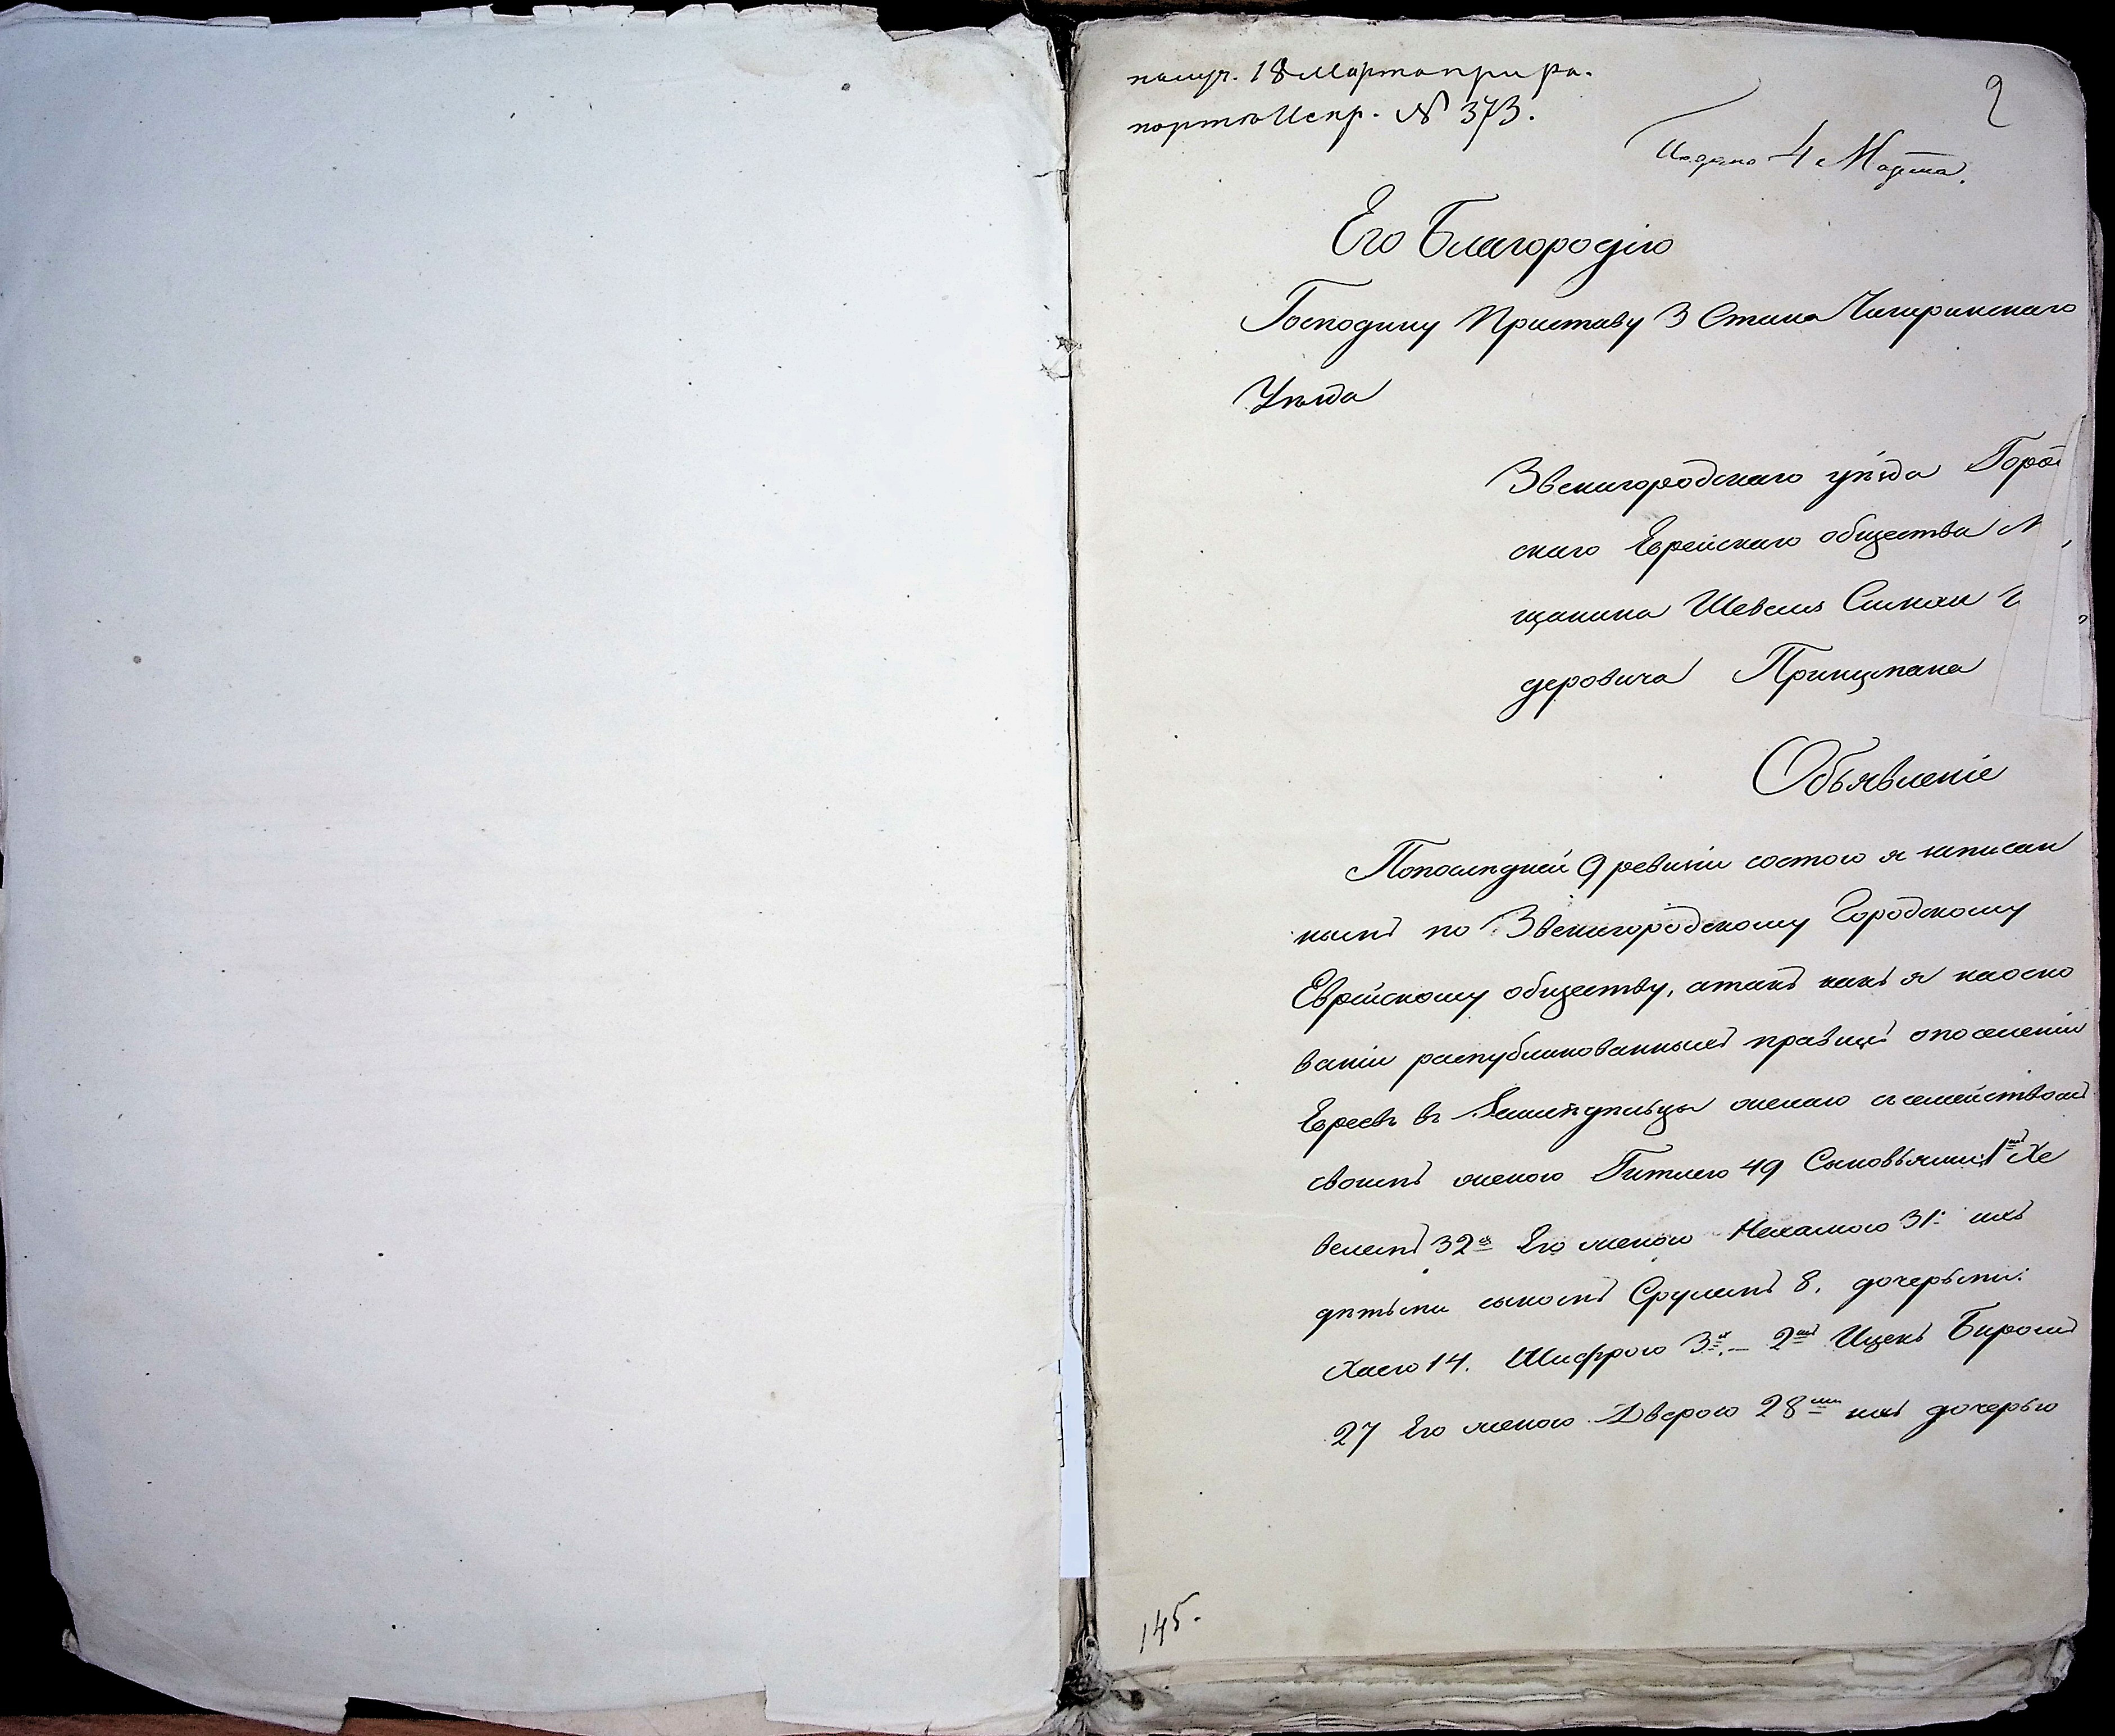 получ. 18 Марта при ра-
портѣ Испр. № 373.
2
Подано 4 Марта.
Его Благородію
Господину Приставу 3 Стана Чигиринскаго
Уѣзда
Звенигородскаго уѣзда Горо
скаго Еврейскаго общества М
щанина Шевеля Сименъ
деровича Принцмана
Объявленіе
Попослѣдней 9 ревизіи состою я записан
нымъ по Звенигородскому Городскому
Еврейскому обществу, атакъ какъ я наосно
ваніи распубликованныхъ правилъ опоселеніи
Евреевъ въ желаю съсемействомъ
своимъ женою Гитлею 49 Сыновьями: 1мъ Хе
велемъ 32х Его женою Нехамою 31: ихъ
дѣтьми сыномъ Срулемъ 8. дочерьми:
Хаею 14. Шифрою 3х.– 2мъ Ицекъ Беромъ
27 Его женою Двероюю 28ми ихъ дочерью
145.